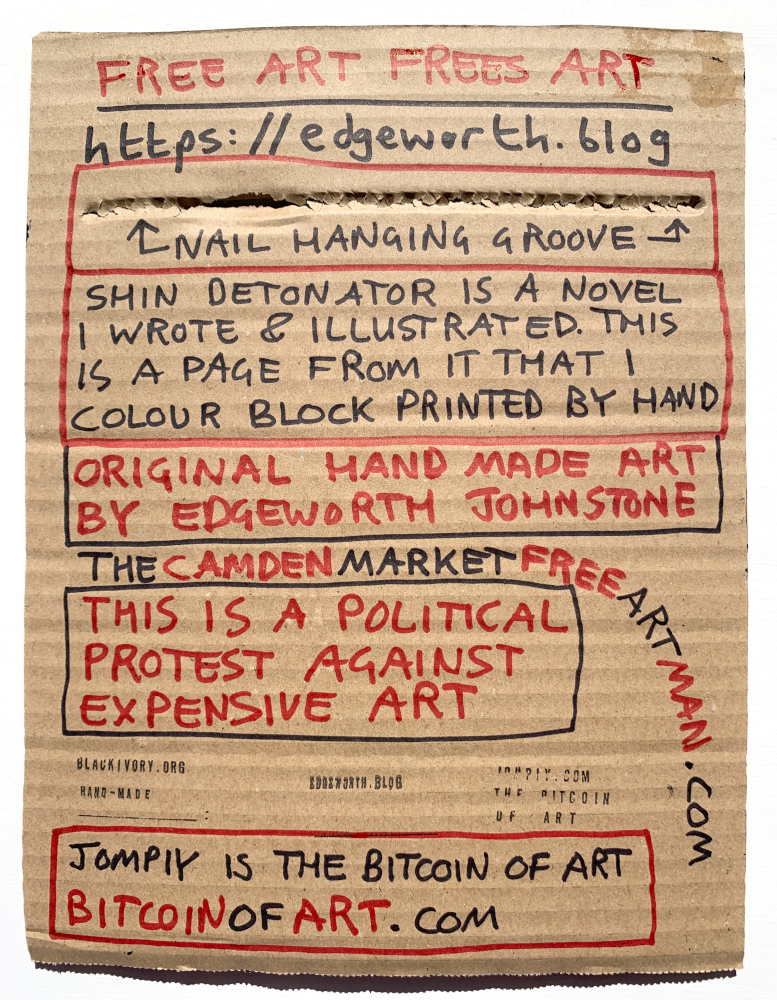 FREE ART FREES ART
https://edgeworth.blog
↑NAIL HANGING GROOVE↑
SHIN DETONATOR IS A NOVEL
I WROTE & ILLUSTRATED. THIS
IS A PAGE FROM IT THAT I
COLOUR BLOCK PRINTED BY HAND
ORIGINAL HAND MADE ART
BY EDGEWORTH JOHNSTONE
THECAMDENMARKETFREEARTMAN.COM
THIS IS A POLITICAL
PROTEST AGAINST
EXPENSIVE ART
BLACKIVORY.ORG
HAND-MADE
EDGEWORTH.BLOG
JOMPIY.COM
THE BITCOIN
OF ART
JOMPIY IS THE BITCOIN OF ART
BITCOINOFART.COM